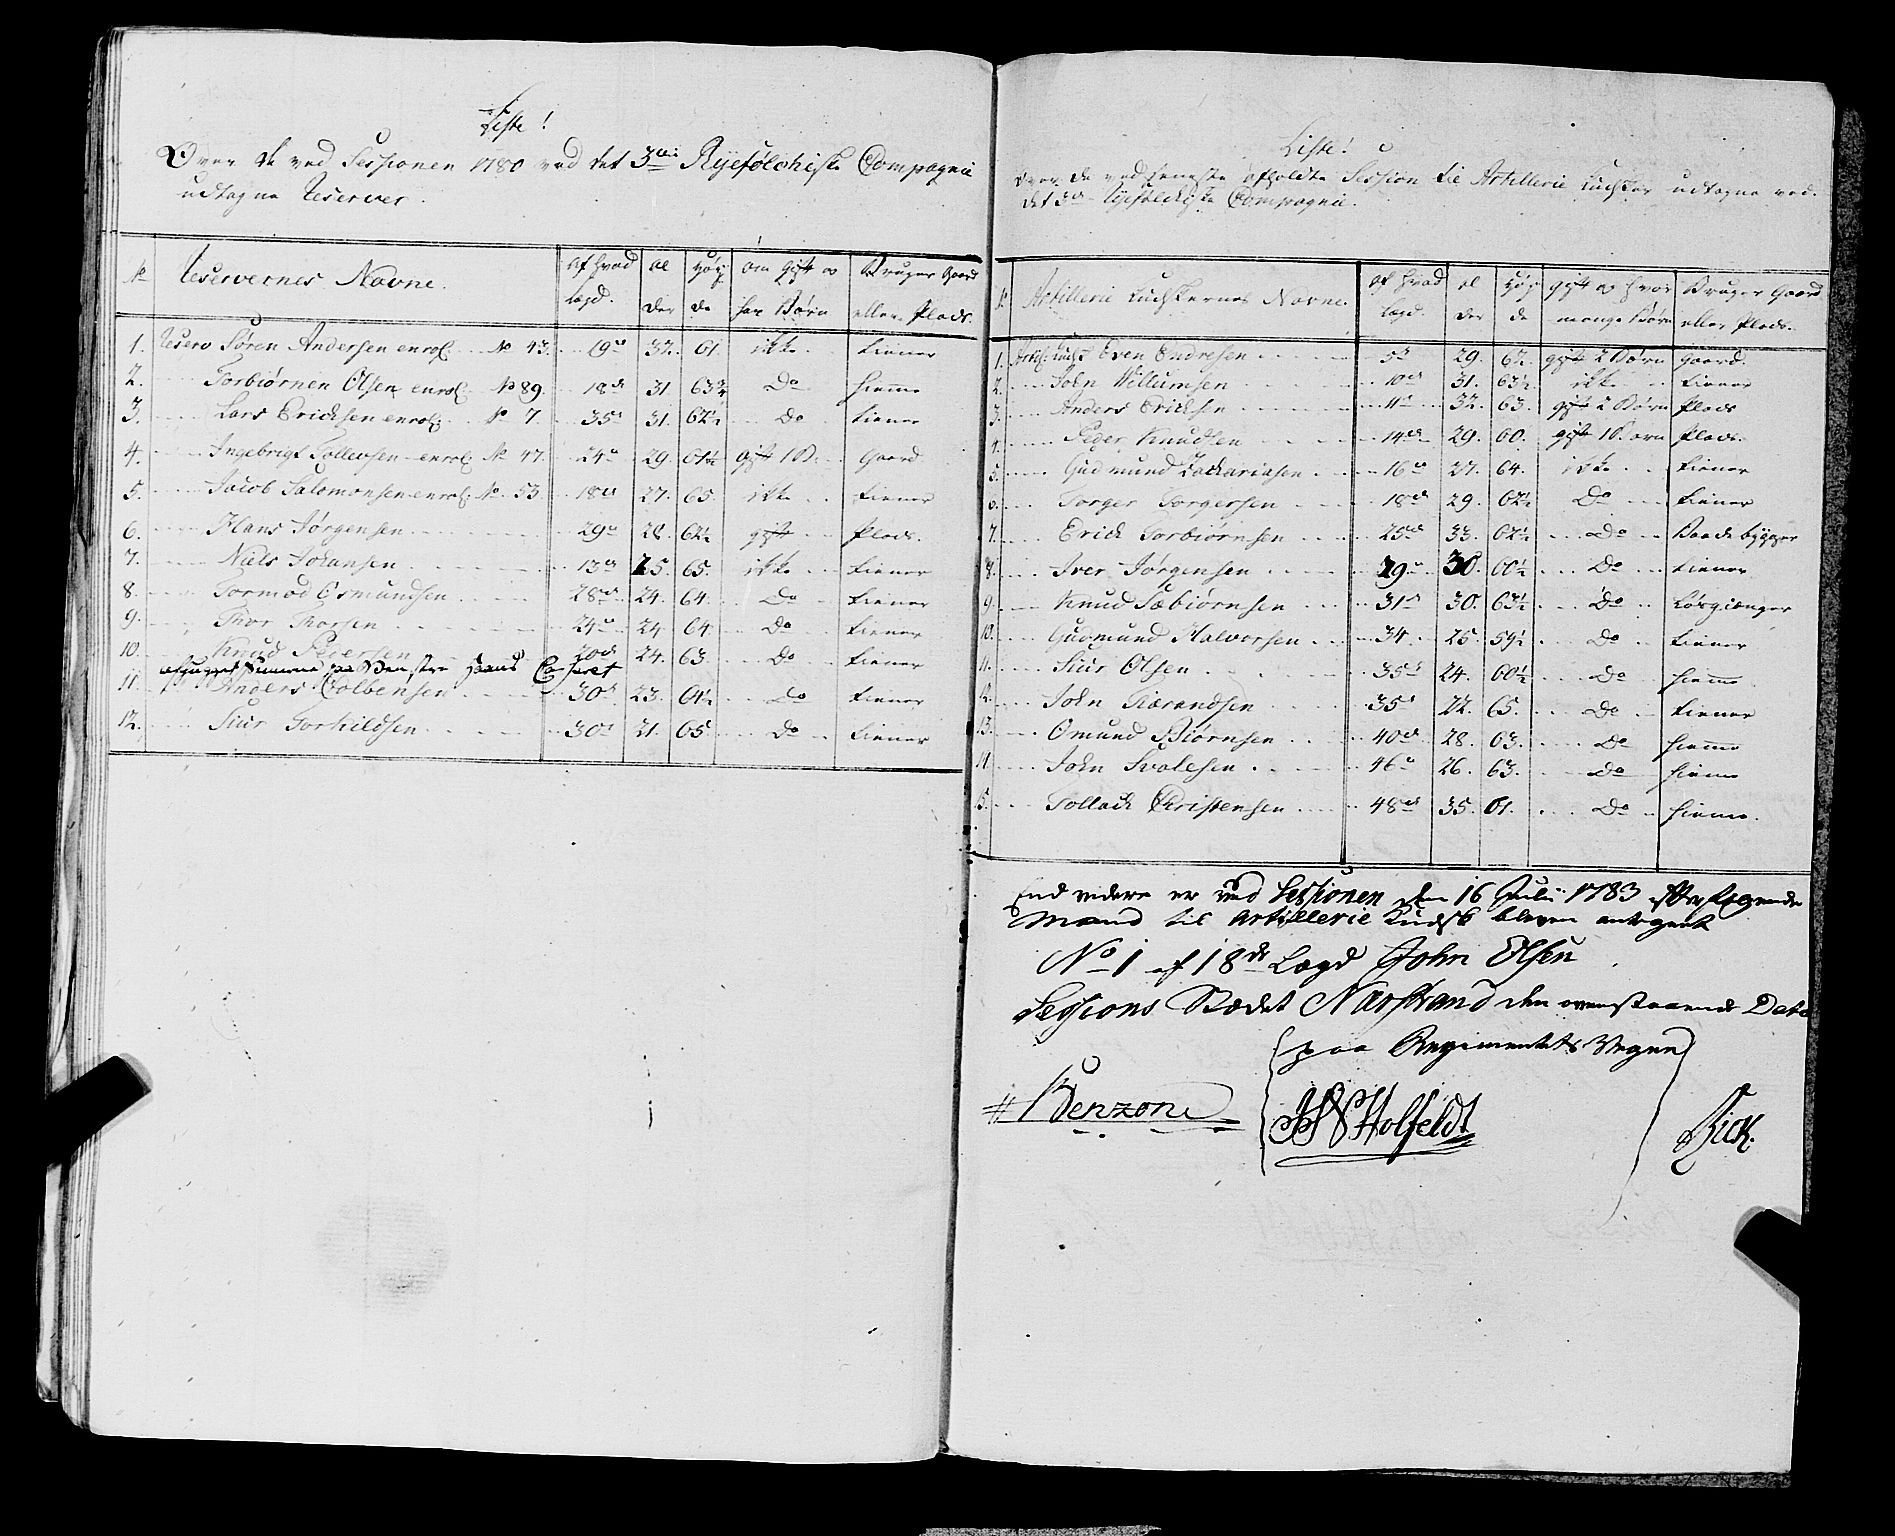 Liste!
Over de ved Sessionen 1780 ved det 3die Ryefølchiske Compagnie
udtagne Reserver.
No Reservernes Navne. af hvad Lægd. Alder Høyde om gift og har Børn Bruger Gaard eller Plads.
1. Reserv Søren Andersen enrol. No 43. 19de 32. 61. ikke tiener
2. Torbiørnen Olsen enrol. No 89. 18de 31 63¾ Do hiemme
3. Lars Ericksen enrol. No 7. 35te 31. 62½ Do tiener
4. Ingebrigt Tollevsen enrol. No 47. 24de 29. 61½ Gift 1 B. Gaard
5. Jacob Salomonsen enrol. No 53. 18de 27. 65. ikke tiener
6. Hans Jørgensen 29de 28. 62½ gift Plads.
7. Niels Johansen 13de 25. 65. ikke tiener
8. Tormod Osmundsen 28de 24. 64. Do tiener
9. Thor Thorsen 24de 24. 64. Do tiener
10. Knud Pedersen 20de 24. 63. Do tiener
afhugget paa Venstre Haand Casseret
11. Anders Colbensen 30te 23. 61½ Do tiener
12. Siur Torkildsen 30te 21. 65. Do tiener
Liste!
over de ved seneste afholdte Session til Artillerie Kudske udtagne ved
det 3die Ryefølckiske Compagnie.
No Artillerie Kudskernes Navne. af hvad Lægd. Alder Høyde gift og hvor mange Børn Bruger Gaard eller Plads.
1. Artil. Kudsk Even Endresen 5te 29. 62. gift 2 Børn Gaard.
2. John Willumsen 10de 31. 63½ ikke tiener
3. Anders Ericksen 11te 32. 63. gift 2 Børn Plads
4. Peder Knudsen 14de 29. 60. gift 1 Barn Plads.
5. Gudmund Zachariasen 16de 27. 64. ikke tiener
6. Torger Torgersen 18de 29. 62½ Do tiener
7. Erick Torbiørnsen 25de 33. 62½ Do Baadebygger
8. Iver Jørgensen 29de 30. 60½ Do tiener
9. Knud Sæbiørnsen 31te 30. 63½ Do Løsgiænger
10. Gudmund Halvorsen 34. 25. 59½ Do tiener
11. Siur Olsen 35te 24. 60½ Do hiemme
12. John Tiærandsen 35te 22. 65. Do tiener
13. Omund Biørnsen 40de 28. 63. Do hiemme
14. John Svalesen 46de 26. 63. Do hieme
15. Tollack Christensen 48de 35. 61. Do hieme.
End videre er ved Sessionen den 16 Julii 1783 efterfølgende
Mand til Artillerie Kudsk bleven antegnet
No 1 af 18de Lægd John Olsen
Sessions Stædet Narstrand den ovenstaaende Dato
paa Regimentets Vegne
Benzon Holfeldt Fick.